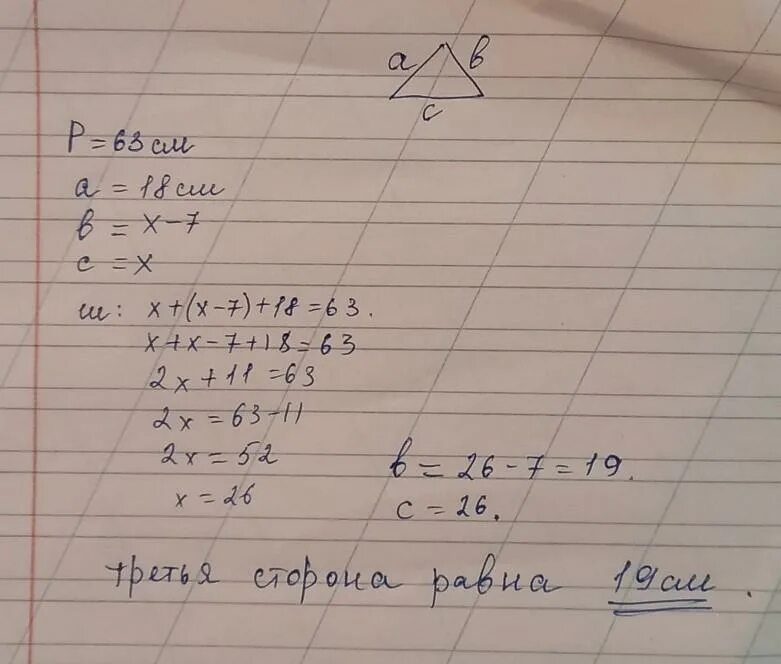 a в
c
P = 63 см
a = 18 см
в = x - 7
c = x
ш: x + (x - 7) + 18 = 63.
x + x - 7 + 18 = 63
2x + 11 = 63
2x = 63 - 11
2x = 52
x = 26
в = 26 - 7 = 19.
c = 26.
третья сторона равна 19 см.